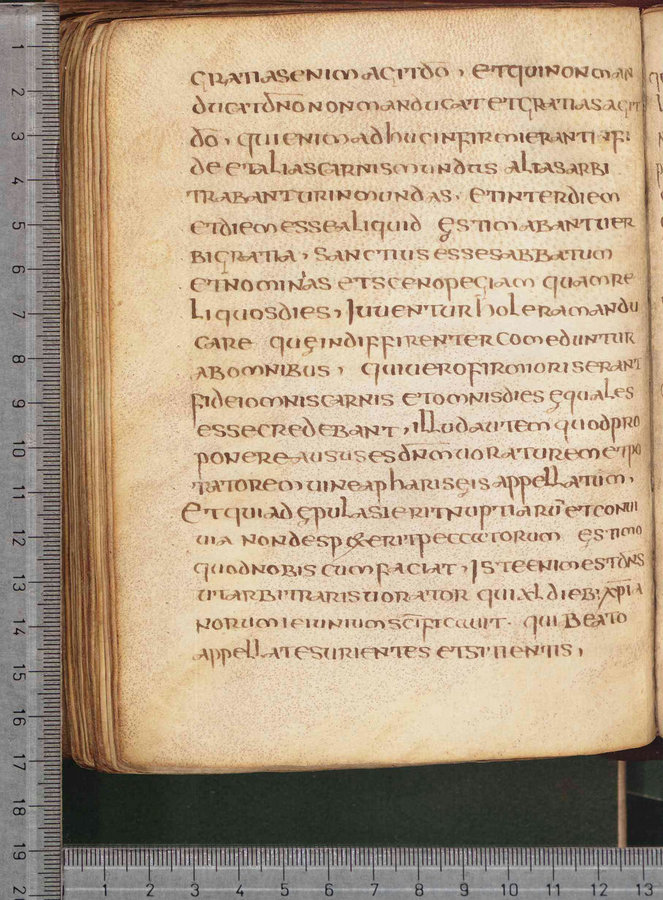 gratias enim agit dō, et qui non man
ducat dn̄o non manducat et gratias agit
dō, qui enim adhuc infirmi erant in fi
de et alias carnis mundas alias arbi
trabantur inmundas, et inter diem
et diem esse aliquid ęstimabant uer
bi gratia, sanctius esse sabbatum
et nominias et scenopegiam quam re
liquos dies, Iuuentur holera mandu
care quę indiffirenter comeduntur
ab omnibus, qui uero firmioris erant
fidei omnis carnis et omnis dies ęquales
esse credebant, illud autem quod pro
ponere ausus es dn̄m uoraturem et po
tatorem uine a pharisęis appellatum,
Et quia ad ępulas ierit nuptiarū et conui
uia non despexerit peccatorum ęstimo
quod nobis cum faciat, Iste enim est dn̄s
ut arbitraris uorator qui xl dieb; xp̄ia
norum ieiunium sc̄ificauit. qui beato
appellat esurientes et sitientis,
1
2
3
4
5
6
7
8
9
10
11
12
13
14
15
16
17
18
19
1 2 3 4 5 6 7 8 9 10 11 12 13